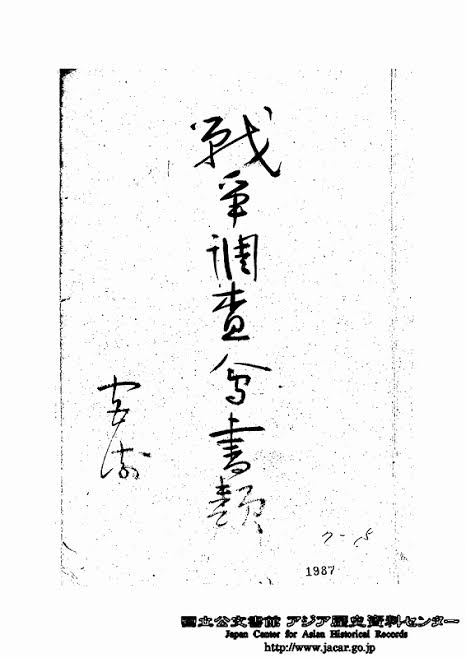 戦争調査会書類
7-15
1987
国立公文書館 アジア歴史資料センター
Japan Center for Asian Historical Records
http://www.jacar.go.jp